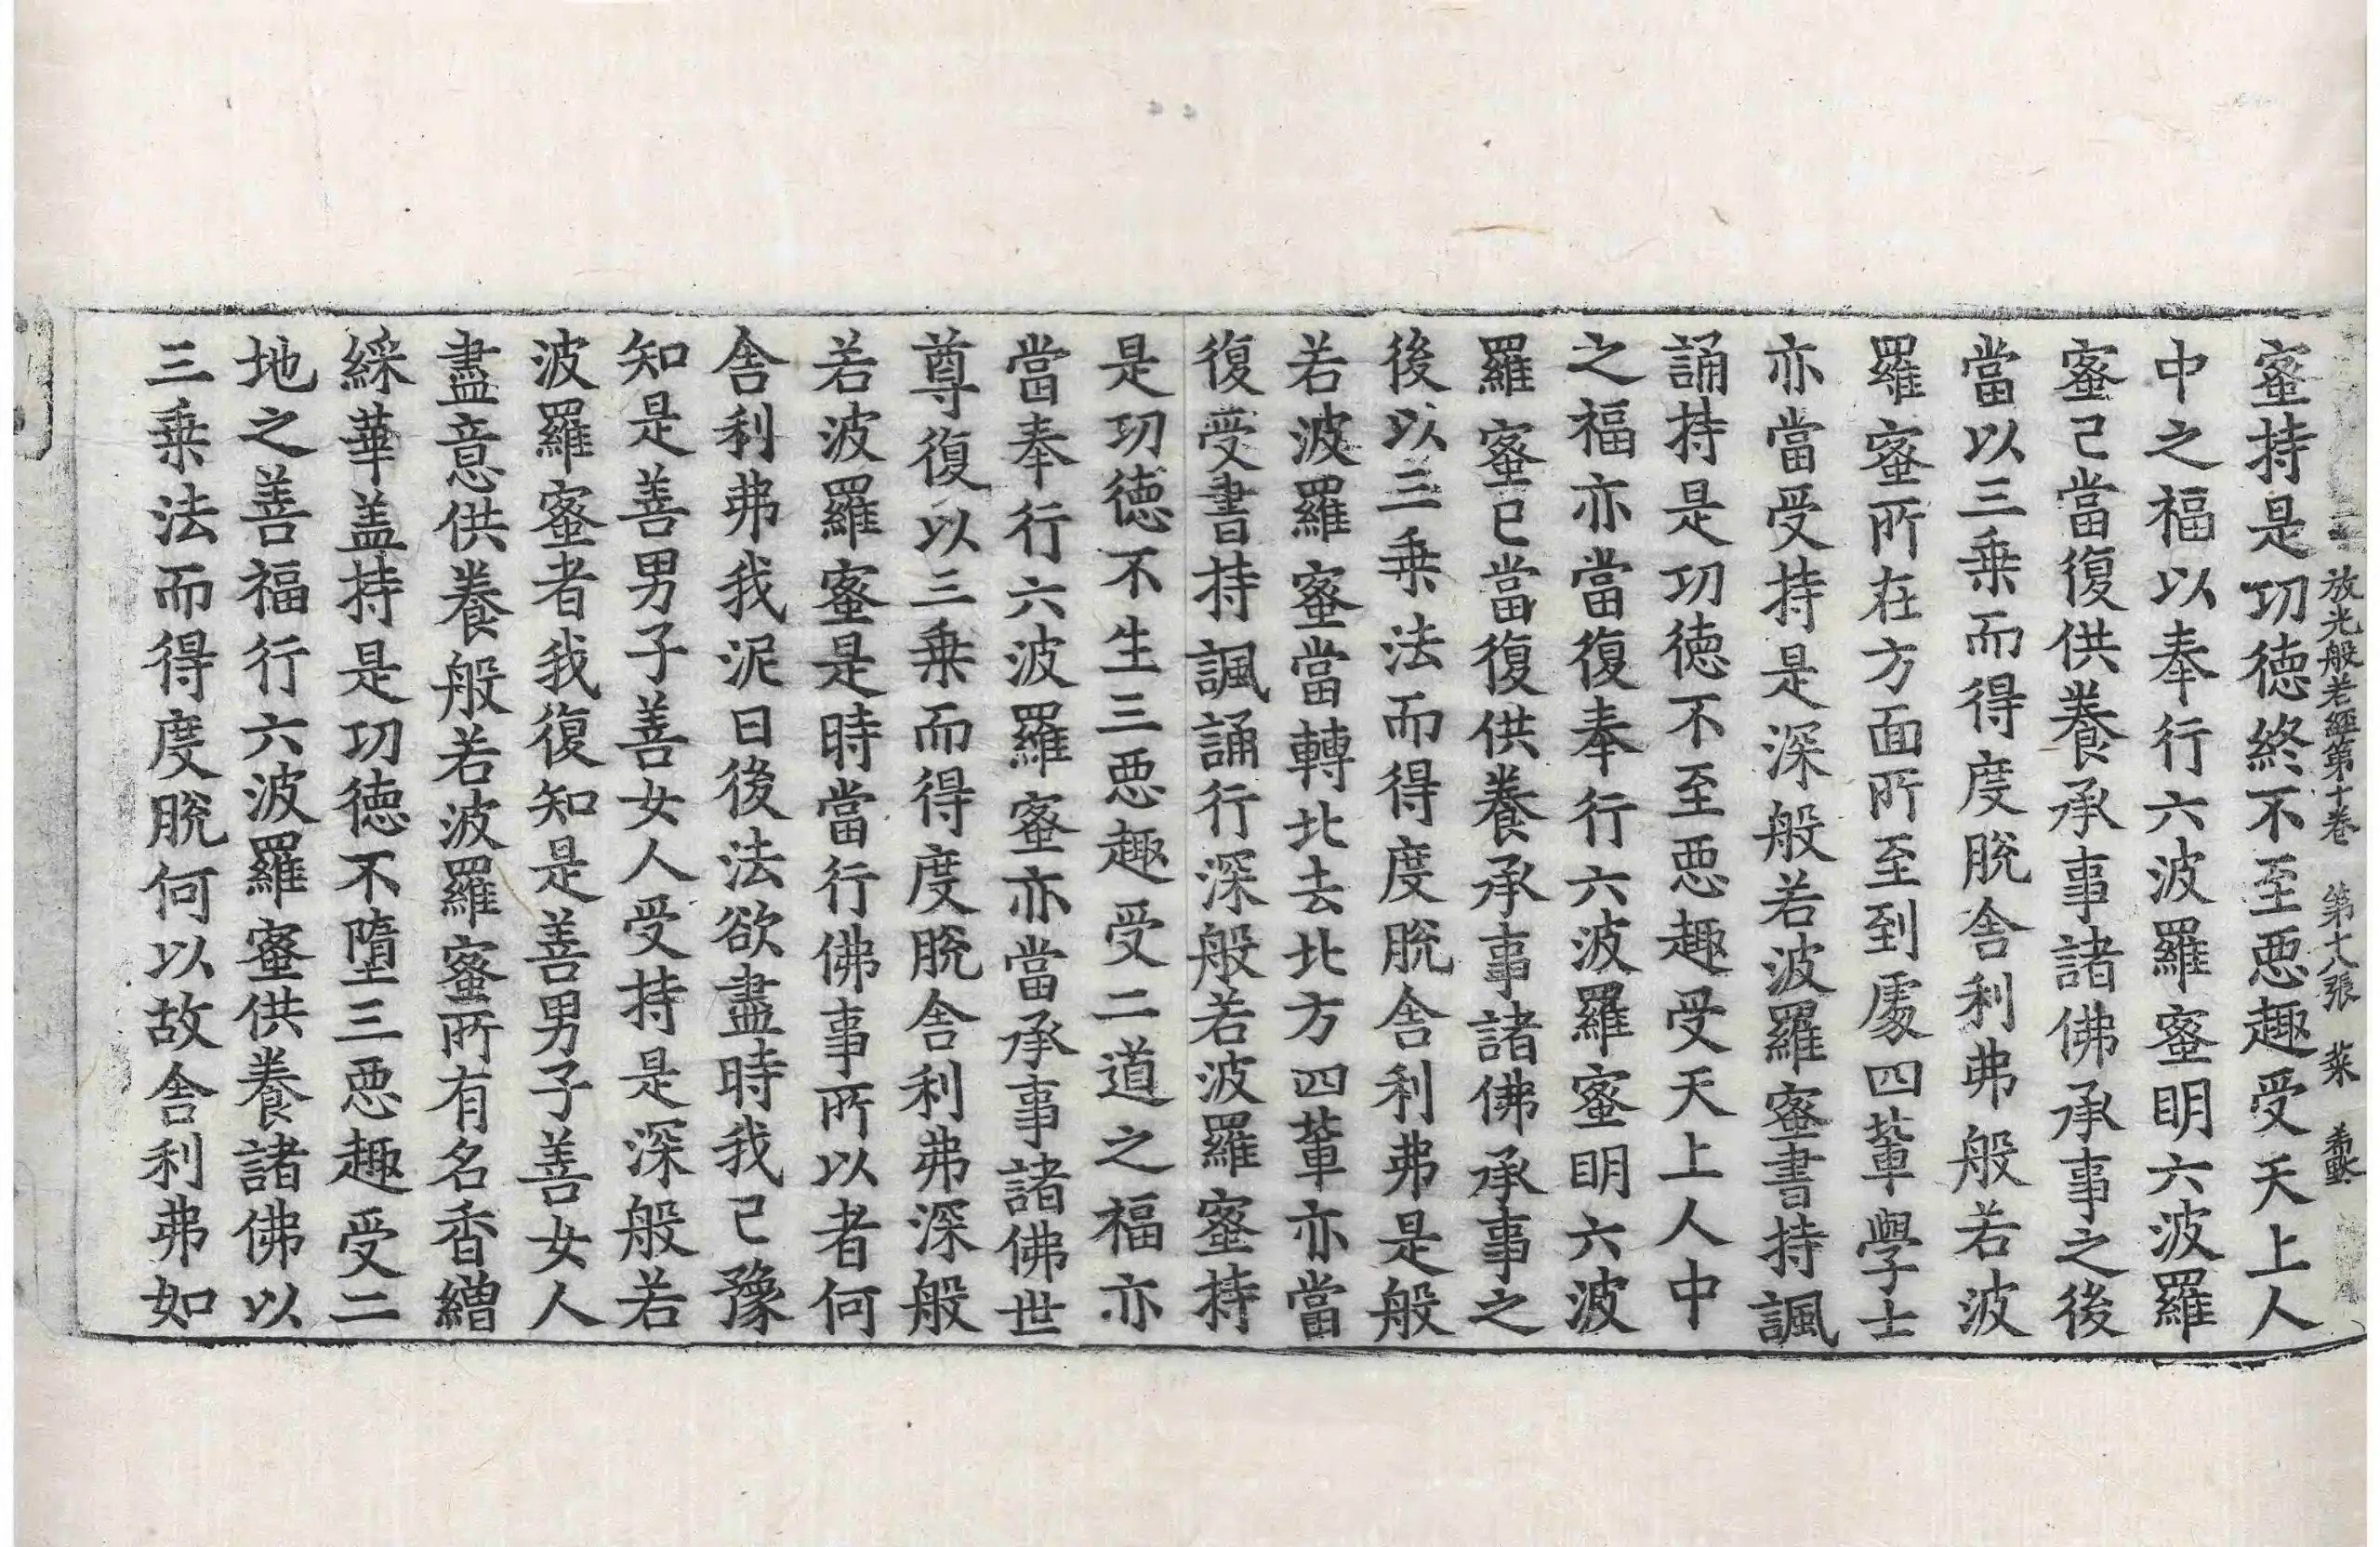 放光般若經第十卷 第十八張 菜
蜜持是功德終不至惡趣受天上人
中之福以奉行六波羅蜜明六波羅
蜜已當復供養承事諸佛承事之後
當以三乘而得度脫舍利弗般若波
羅蜜所在方面所至到處四輩學士
亦當受持是深般若波羅蜜書持諷
誦持是功德不至惡趣受天上人中
之福亦當復奉行六波羅蜜明六波
羅蜜已當復供養承事諸佛承事之
後以三乘法而得度脫舍利弗是般
若波羅蜜當轉北去北方四輩亦當
復受書持諷誦行深般若波羅蜜持
是功德不生三惡趣受二道之福亦
當奉行六波羅蜜亦當承事諸佛世
尊復以三乘而得度脫舍利弗深般
若波羅蜜是時當行佛事所以者何
舍利弗我泥曰後法欲盡時我已豫
知是善男子善女人受持是深般若
波羅蜜者我復知是善男子善女人
盡意供養般若波羅蜜所有名香繒
綵華盖持是功德不墮三惡趣受二
地之善福行六波羅蜜供養諸佛以
三乘法而得度脫何以故舍利弗如